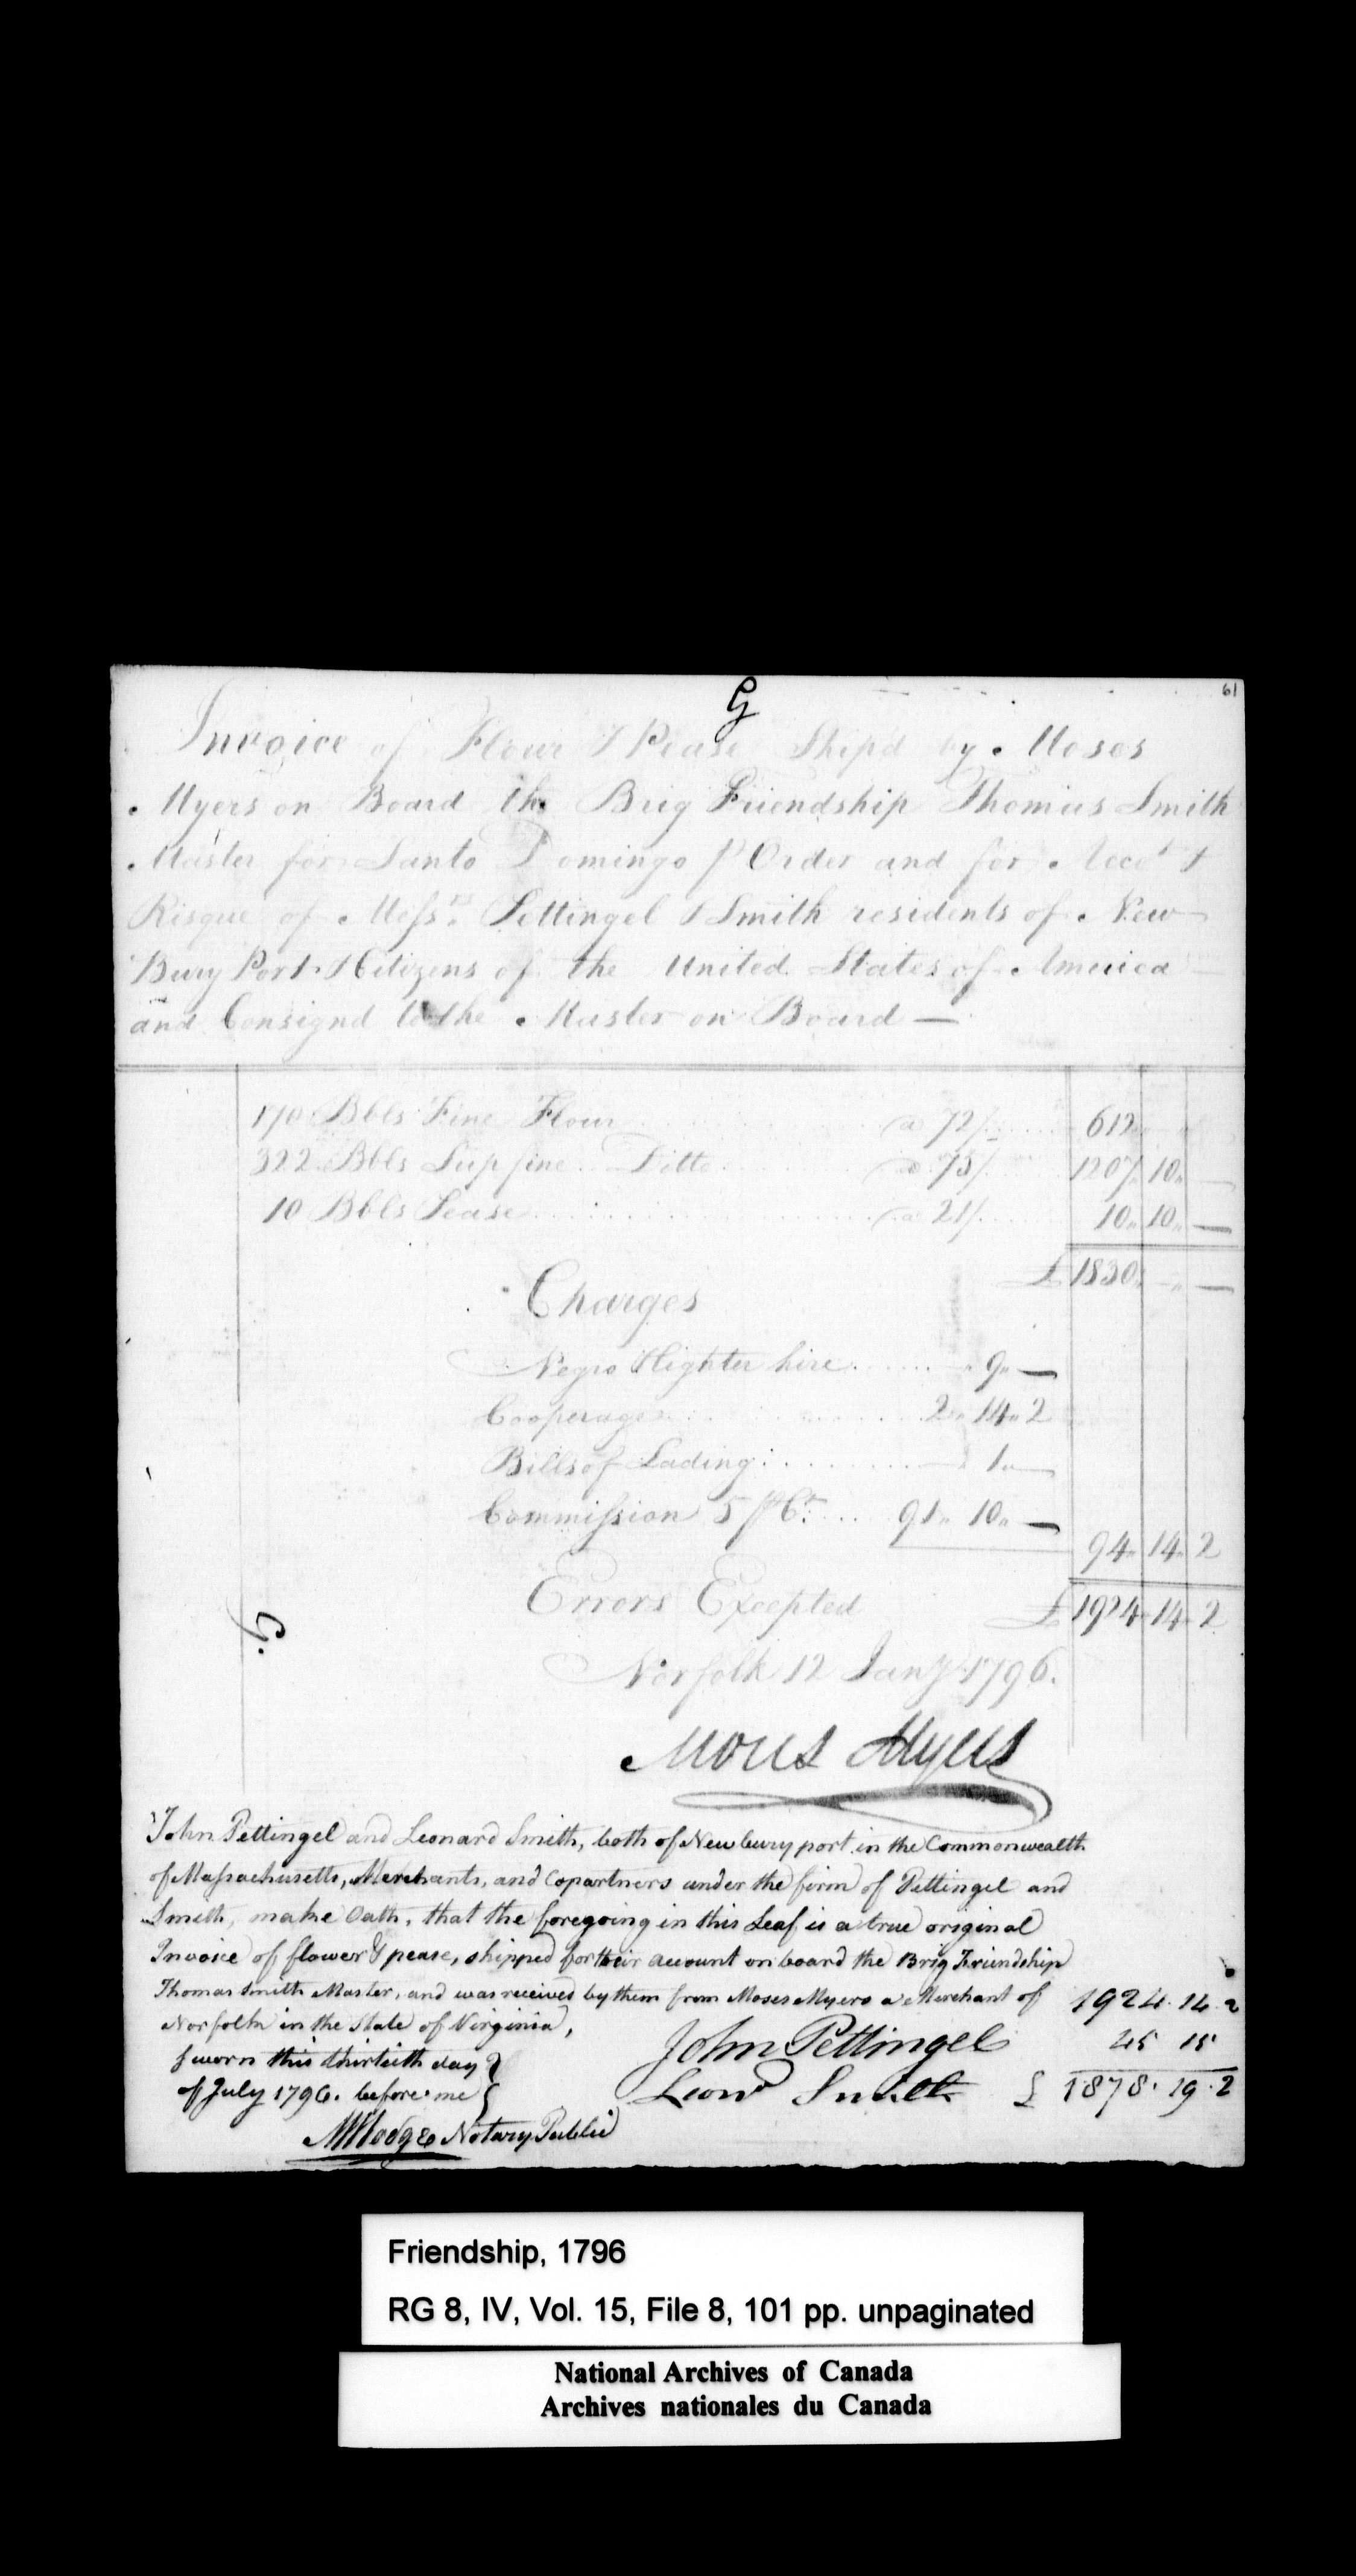 G
61
Invoice of Flour & Pease Ship'd by Moses
Myers on Board the Brig Friendship Thomas Smith
Master for Santo Domingo p Order and for Acco.t &
Risque of Mess.rs Pettingel & Smith residents of New
Bury Port & Citizens of the United States of America
and Consignd to the Master on Board —
170 Bbls Fine Flour @ 72/. 612
322 Bbls Supfine Ditto @ 75/. 1207 10 —
10 Bbls Pease @ 21/. 10 10 —
£ 1830 - —
Charges
Negro & lighter hire 9 —
Cooperage 2 14 2
Bills of Lading 1 —
Commission 5 p C.t 91 10 —
94 14 2
Errors Excepted £ 1924 14 2
G.
Norfolk 12 Jany 1796.
Moses Myers
John Pettingel and Leonard Smith, both of Newburyport in the Commonwealth
of Massachusetts, Merchants, and Copartners under the firm of Pettingel and
Smith, make Oath, that the foregoing in this Leaf is a true original
Invoice of flower & pease, shipped for their account on board the Brig Friendship
Thomas Smith Master, and was received by them from Moses Myers a Merchant of
Norfolk in the State of Virginia,
1924. 14. 2
John Pettingel
45 15
Sworn this thirtieth day
of July 1796. before me
Leon.d Smith
£ 1878. 19. 2
M Hodge Notary Public
Friendship, 1796
RG 8, IV, Vol. 15, File 8, 101 pp. unpaginated
National Archives of Canada
Archives nationales du Canada